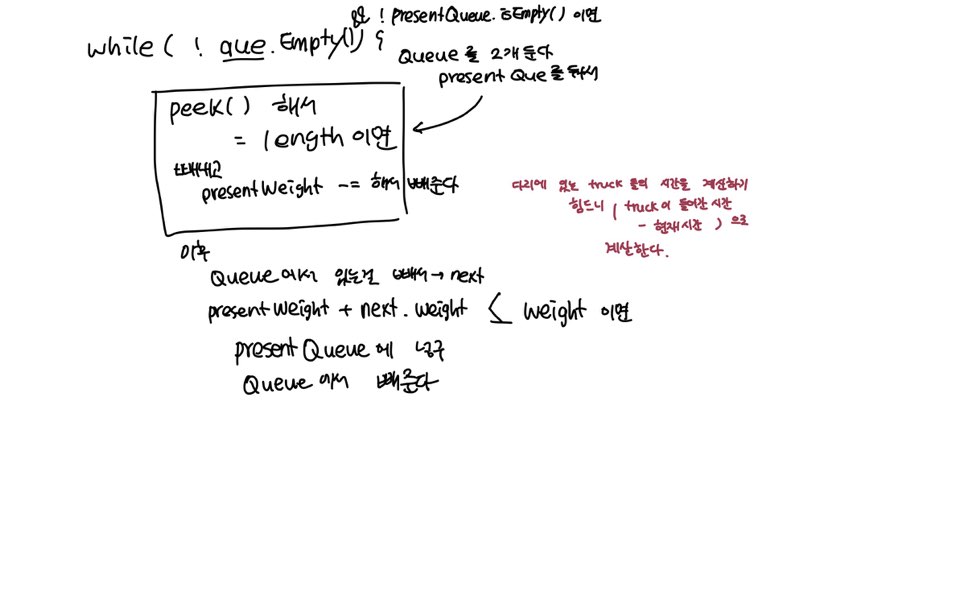 && ! presentQueue.isEmpty() 이면
while ( ! que.Empty()) {
Queue를 2개 둔다
present Que를 둬서
peek() 해서
= length 이면
빼내고
presentWeight -= 해서 빼준다
다리에 있는 truck 들의 시간을 계산하기
힘드니 ( truck이 들어간 시간
- 현재시간 ) 으로
계산한다.
이후
Queue에서 있는걸 빼서 → next
present Weight + next. weight ≤ weight 이면
present Queue에 넣구
Queue에서 빼준다